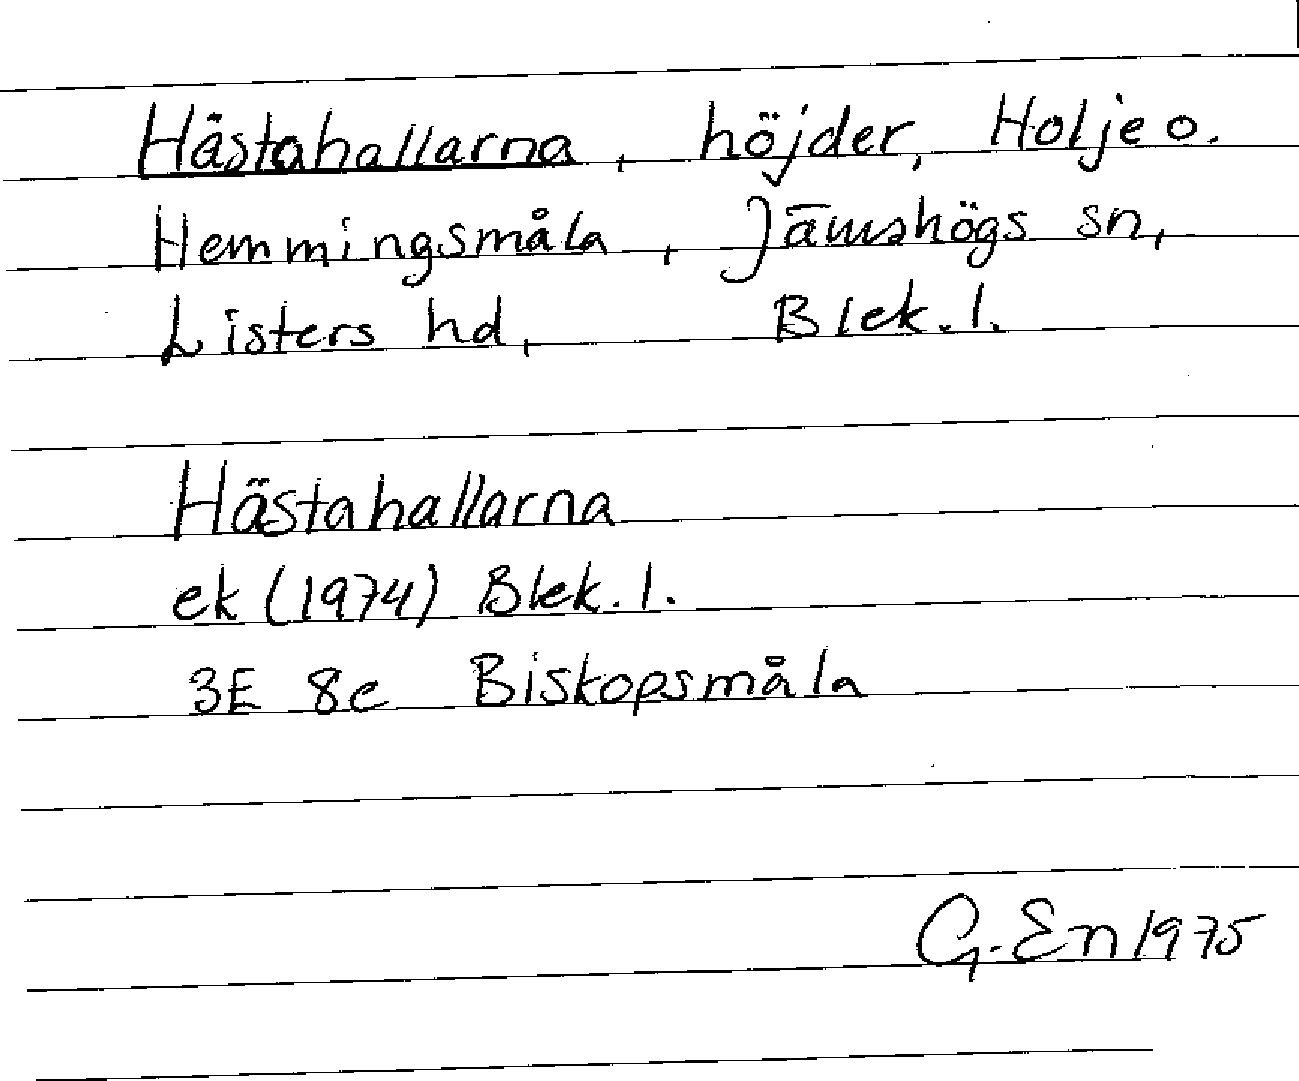 Hästahallarna, höjder, Holje o.
Hemmingsmåla, Jämshögs sn,
Listers hd, Blek. l.
Hästahallarna
ek (1974) Blek. l.
3E 8c Biskopsmåla
G. En 1975